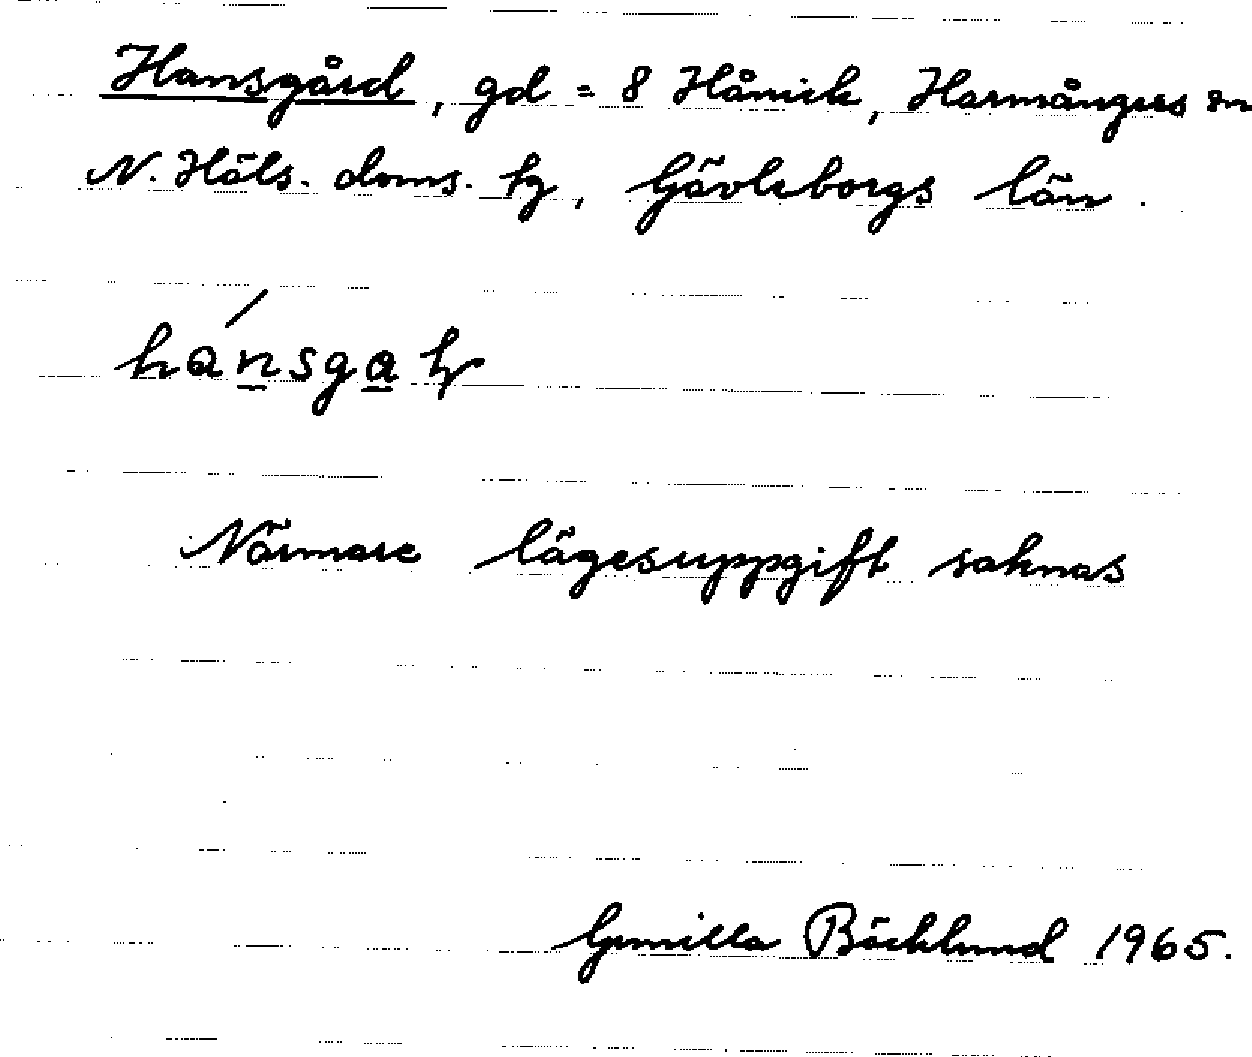 Hansgård, gd = 8 Hånick, Harmångers sn
N. Häls. doms. tg, Gävleborgs län.
hánsga
Närmare lägesuppgift saknas
Gunilla Bäcklund 1965.